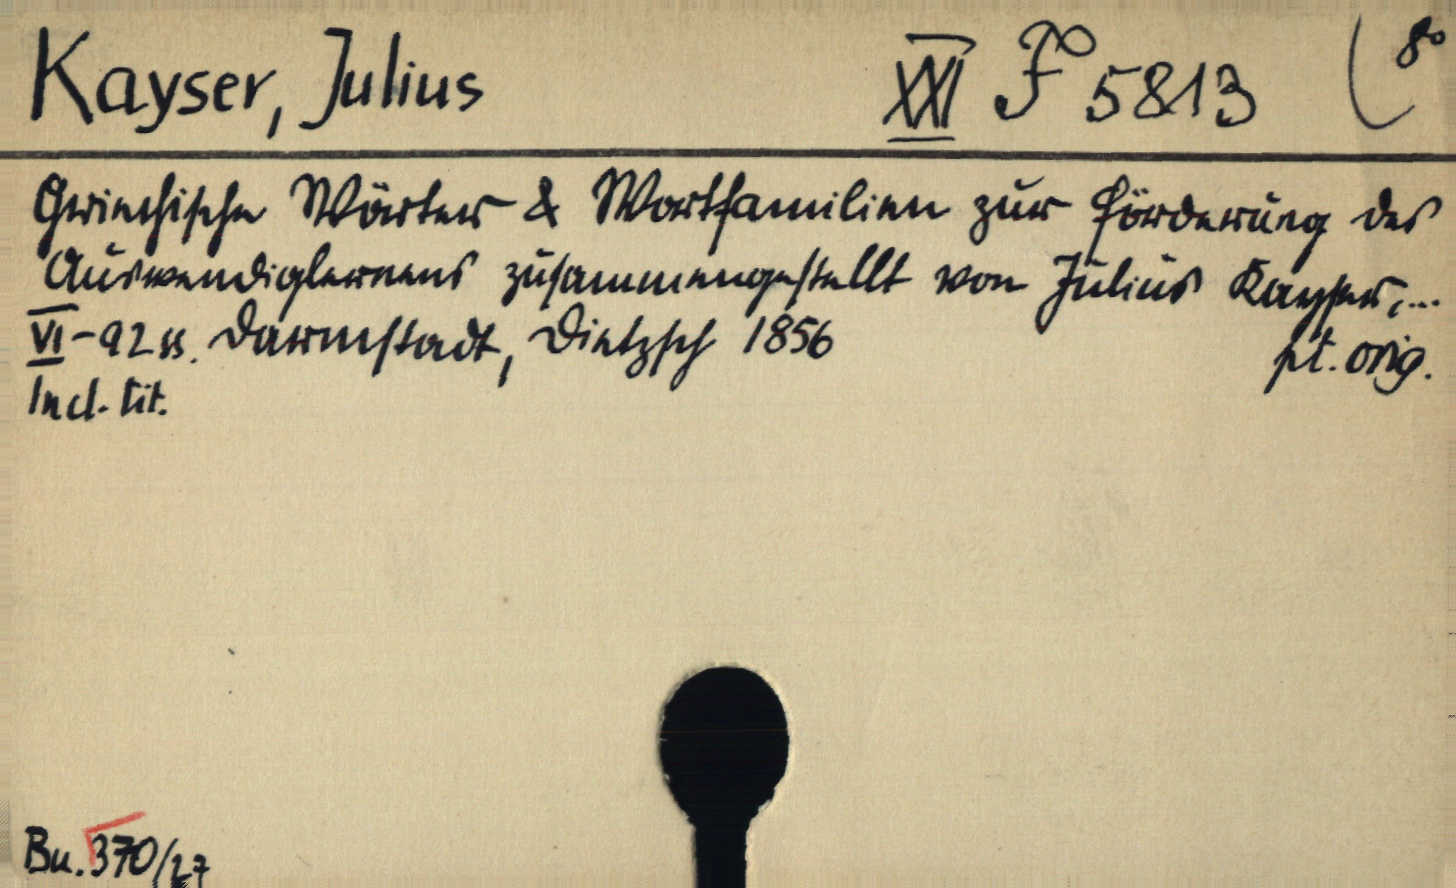 Kayser, Julius XXI F 5813 8°
Griechische Wörter & Wortfamilien zur Förderung des
Auswendiglernens zusammengestellt von Julius Kayser,...
VI-92 ss. Darmstadt, Dietzsch 1856 pt. orig.
Incl. tit.
Bu. 370/27